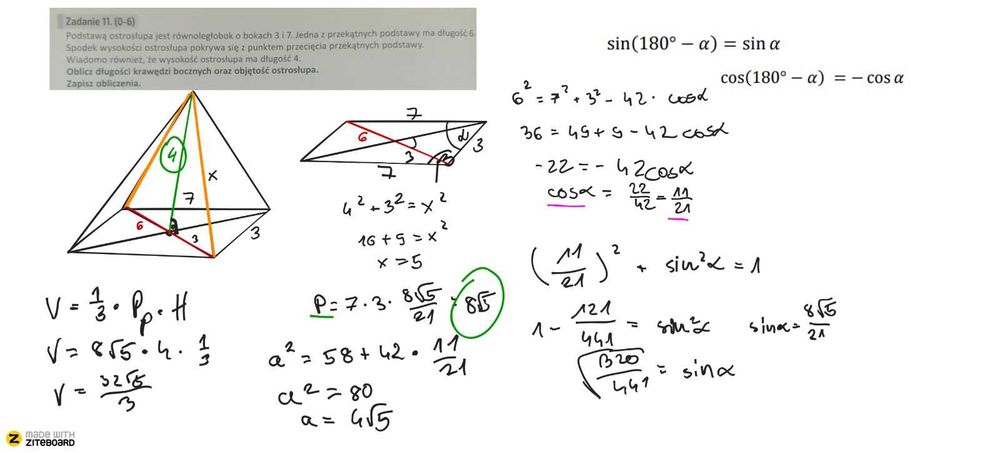 Zadanie 11. (0-6)
Podstawą ostrosłupa jest równoległobok o bokach 3 i 7. Jedna z przekątnych podstawy ma długość 6.
Spodek wysokości ostrosłupa pokrywa się z punktem przecięcia przekątnych podstawy.
Wiadomo również, że wysokość ostrosłupa ma długość 4.
Oblicz długości krawędzi bocznych oraz objętość ostrosłupa.
Zapisz obliczenia.
sin(180° − α) = sin α
cos(180° − α) = − cos α
4
x
7
6
3
3
7
6
α
3
3
7
β
6² = 7² + 3² − 42 · cosα
36 = 49 + 9 − 42 cosα
−22 = − 42cosα
cosα = 22/42 = 11/21
(11/21)² + sin²α = 1
1 − 121/441 = sin²α
sinα = 8√5/21
√320/441 = sinα
4² + 3² = x²
16 + 9 = x²
x = 5
P = 7 · 3 · 8√5/21 = 8√5
a² = 58 + 42 · 11/21
a² = 80
a = 4√5
V = 1/3 · Pp · H
V = 8√5 · 4 · 1/3
V = 32√5/3
Z MADE WITH
ZITEBOARD